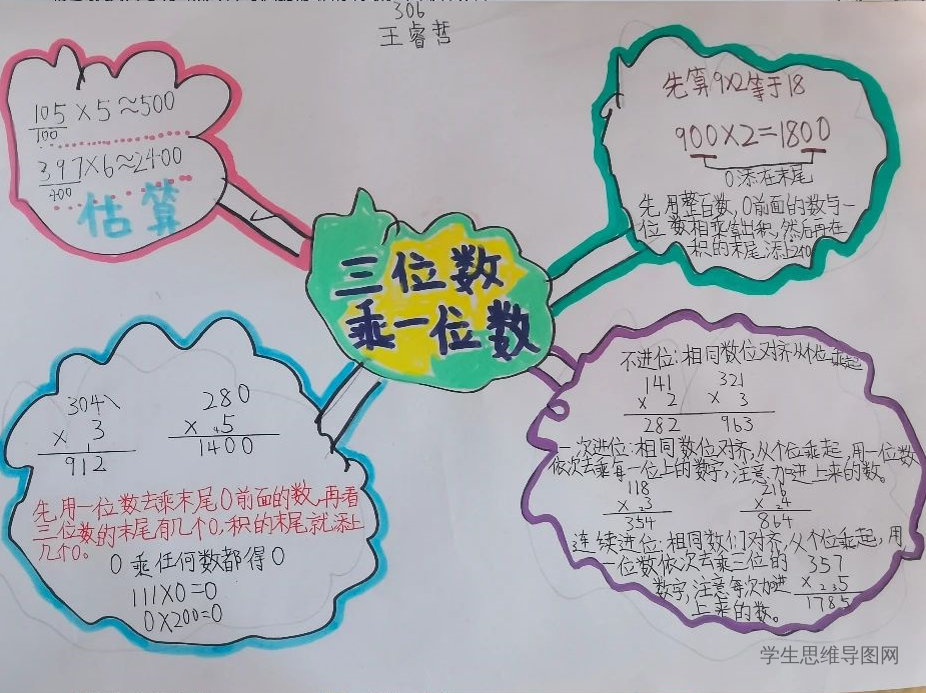 306
王睿哲
105×5≈500
100
397×6≈2400
400
估算
先算9×2等于18
900×2=1800
0添在末尾
先用整百数,0前面的数与一
位数相乘算出积,然后再在
积的末尾添上0
三位数
乘一位数
304
× 3
1
912
280
× 5
4
1400
先用一位数去乘末尾0前面的数,再看
三位数的末尾有几个0,积的末尾就添上
几个0。
0乘任何数都得0
111×0=0
0×200=0
不进位:相同数位对齐从个位乘起
141
× 2
282
321
× 3
963
一次进位:相同数位对齐,从个位乘起,用一位数
依次去乘每一位上的数字,注意加进上来的数。
118
× 2 3
354
216
× 2 4
864
连续进位:相同数们对齐,从个位乘起,用
一位数依次去乘三位的
数字,注意每次加进
上来的数。
357
× 2 3 5
1785
学生思维导图网